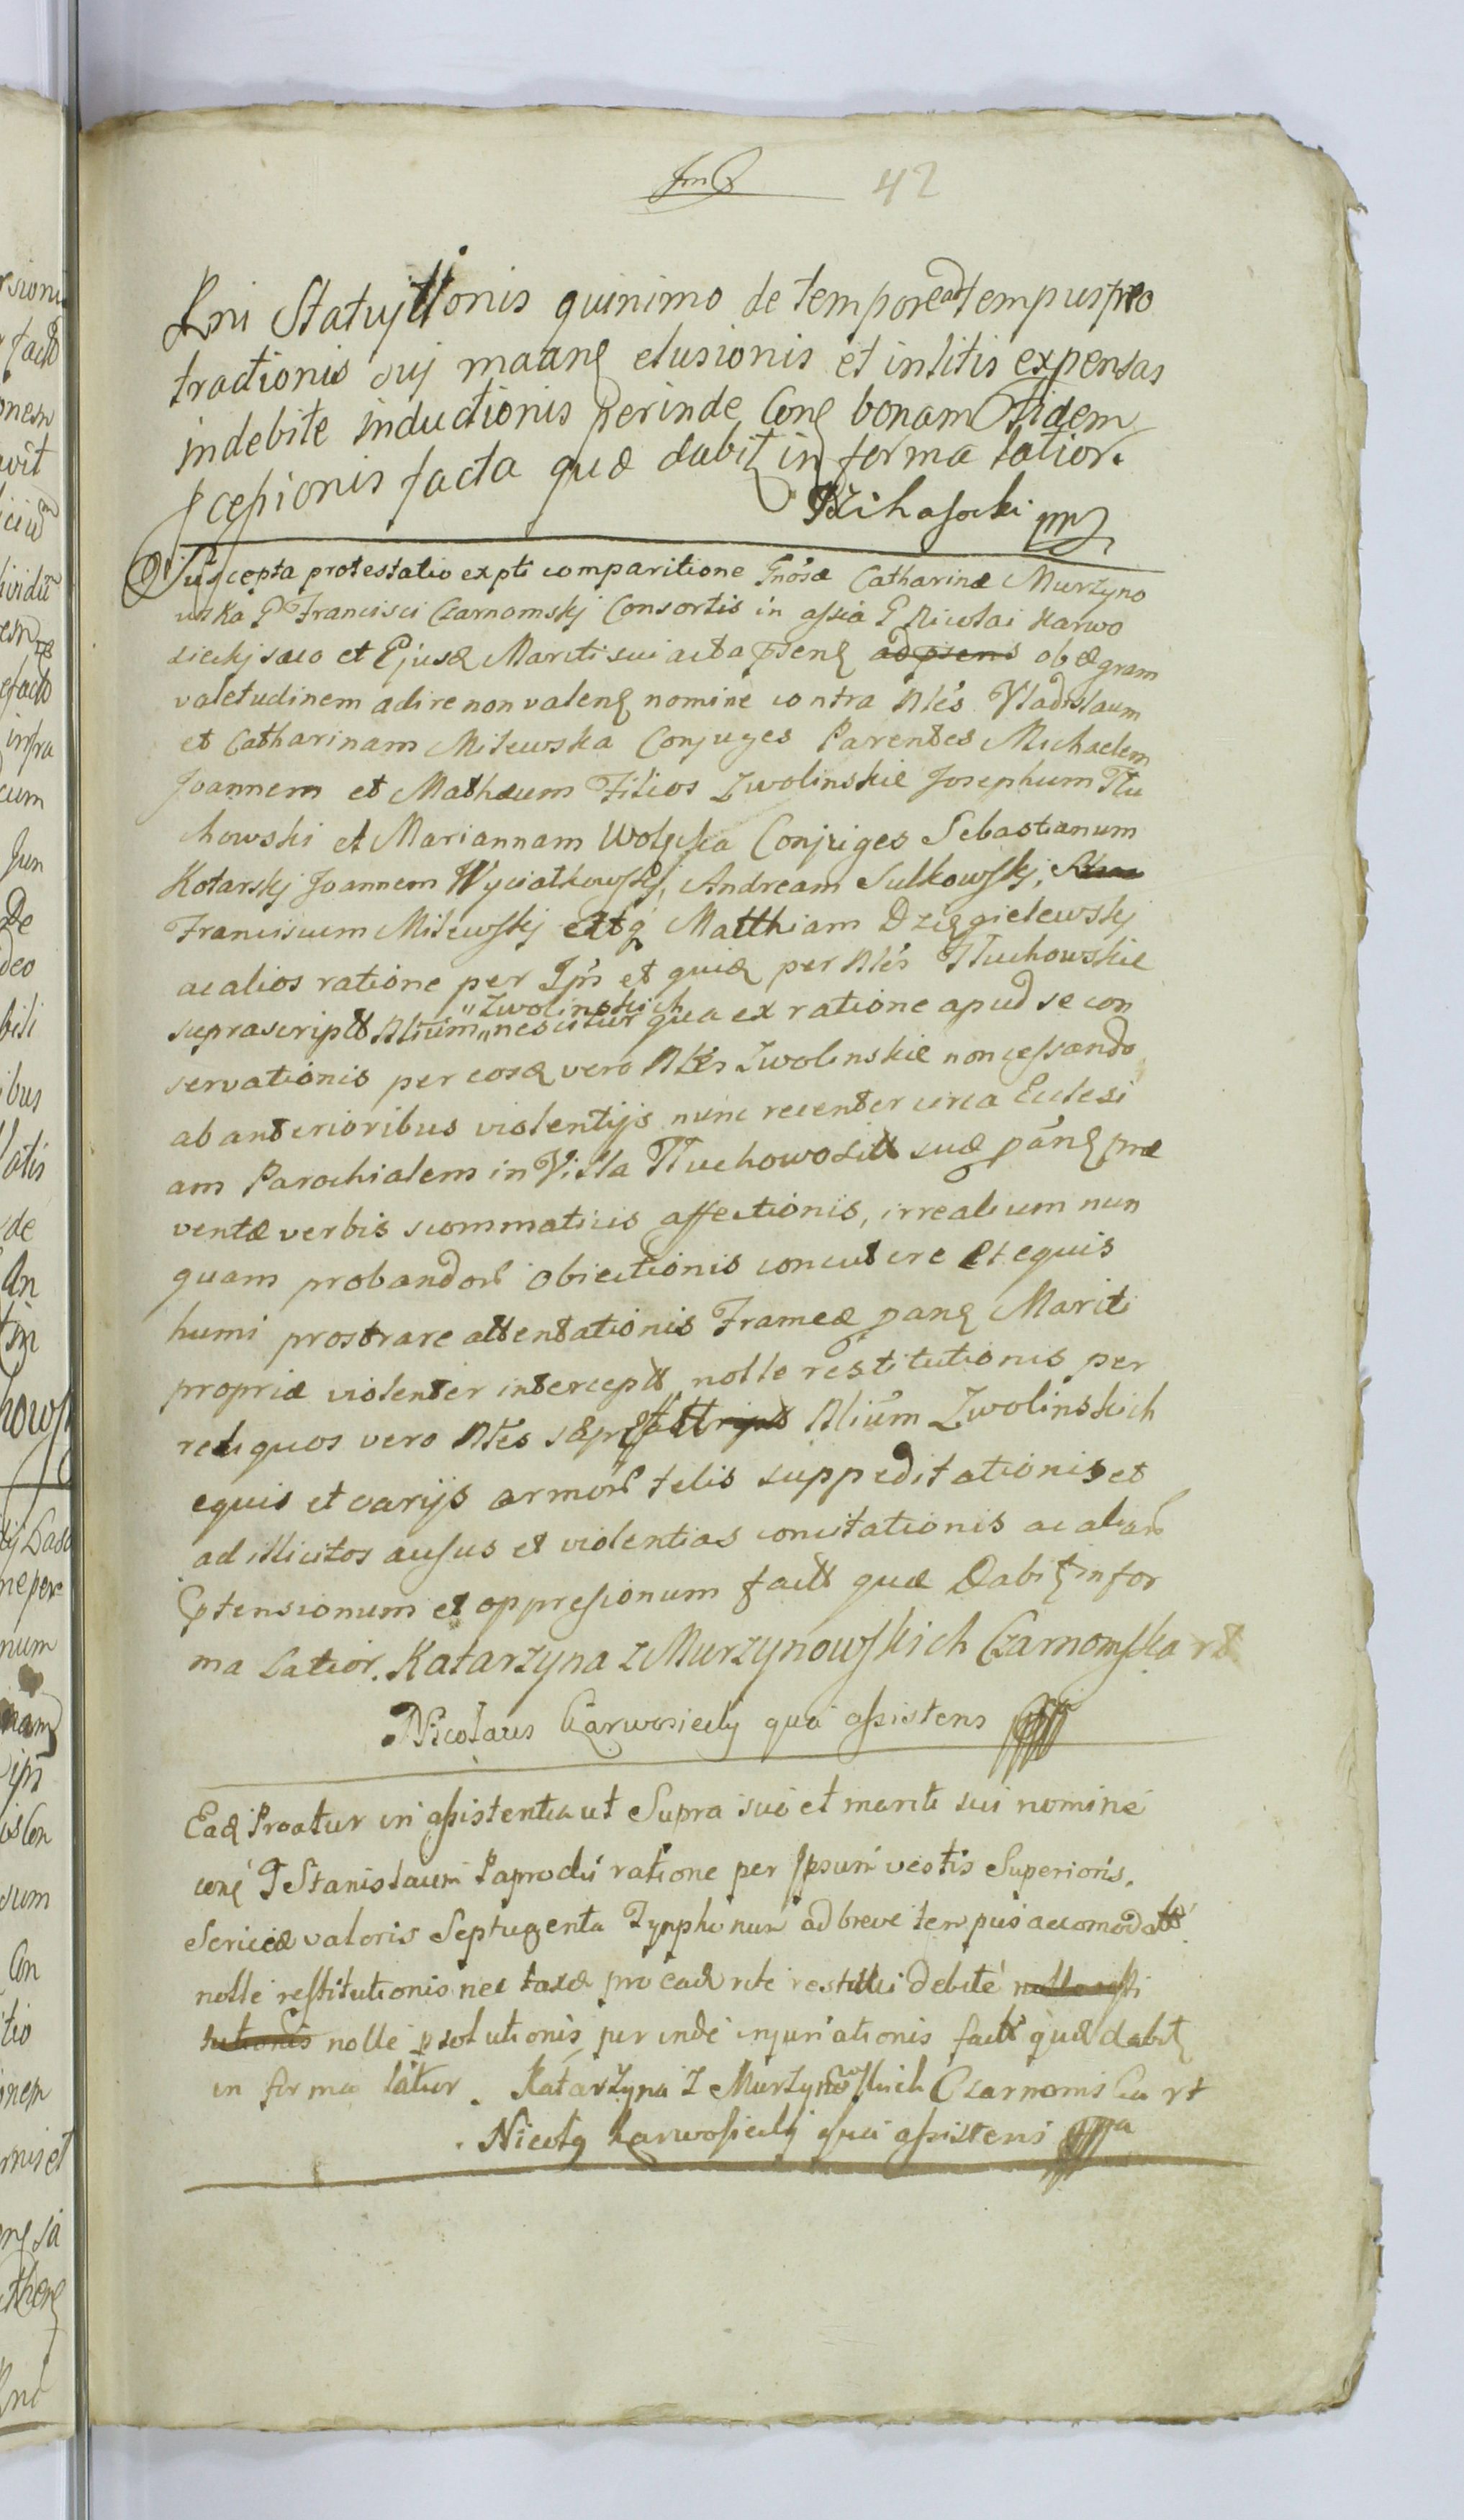 42
Rni Statuitionis quinimo de tempore ad tempus pro
tractionis suj maanę elusionis et in litis expensas
indebite inductionis perinde Conę bonam Fidem
scepionis facta quæ dabiţ in forma latior.
mp
Suscepta protestatio ex pti comparitione Gnosæ Catharinæ Murzyno
wska G Francisci Czarnomskj Consortis in assia G Nicolai Karwo
sieckj suo et Ejusd Mariti sui acta psenę ad psens ob ægram
valetudinem adire non valenę nomine contra Nlés Vladislaum
et Catharinam Milewska Conjuges Parentes Michaelem
Joannem et Mathæum Filios Zwolinskie Josephum Tlu
chowski et Mariannam Wolska Conjuges Sebastianum
Kotarskj Joannem Wyciatkowskj, Andream Sulkowskj,
Franciscum Milewskj Matthiam Dzięgielewskj
ac alios ratione per Ips et quid per Nlés Tluchowskie
"Zwolinskich
suprascript Nlium "nescitur qua ex ratione apud se con
servationis per eosd vero Nlés Zwolinskie non cessando
ab anterioribus violentijs nunc recenter circa Eclesi
am Parochialem in Villa Tluchowo sitt suæ pánę præ
ventæ verbis scommaticis affectionis, irrealium nun
quam probandor obiectionis concutere et equis
humi prostrare attentationis Frameæ panę Mariti
propriæ violenter intercept nolle restitutionis per
reliquos vero Nlés Nlium Zwolinskich
equis et varijs armor telis suppeditationis et
ad illicitos ausus et violentias concitationis ac aliar
Ptensionum et oppresionum fact quæ Dabiţ in for
ma Latior. Katarzyna z Murzynowskich Czarnomska rt
Nicolaus Karwosiecky qua assistens
Ead Proatur in assistentia ut Supra suo et mariti sui nomine
conę G Stanislaum Paprocki ratione per Ipsum vestis Superioris,
Sericeæ valoris Septugenta Tynphonum ad breve tempus accomodatt
nolle restitutionis nec taxæ pro ead rite restitui debite nolle resti
tutionis nolle psolutionis perinde injuriationis fact quæ dabiţ
in forma latior. Katarzyna Z Murzynowskich Czarnomska rt
Nicolg Karwosiecky qua assistens